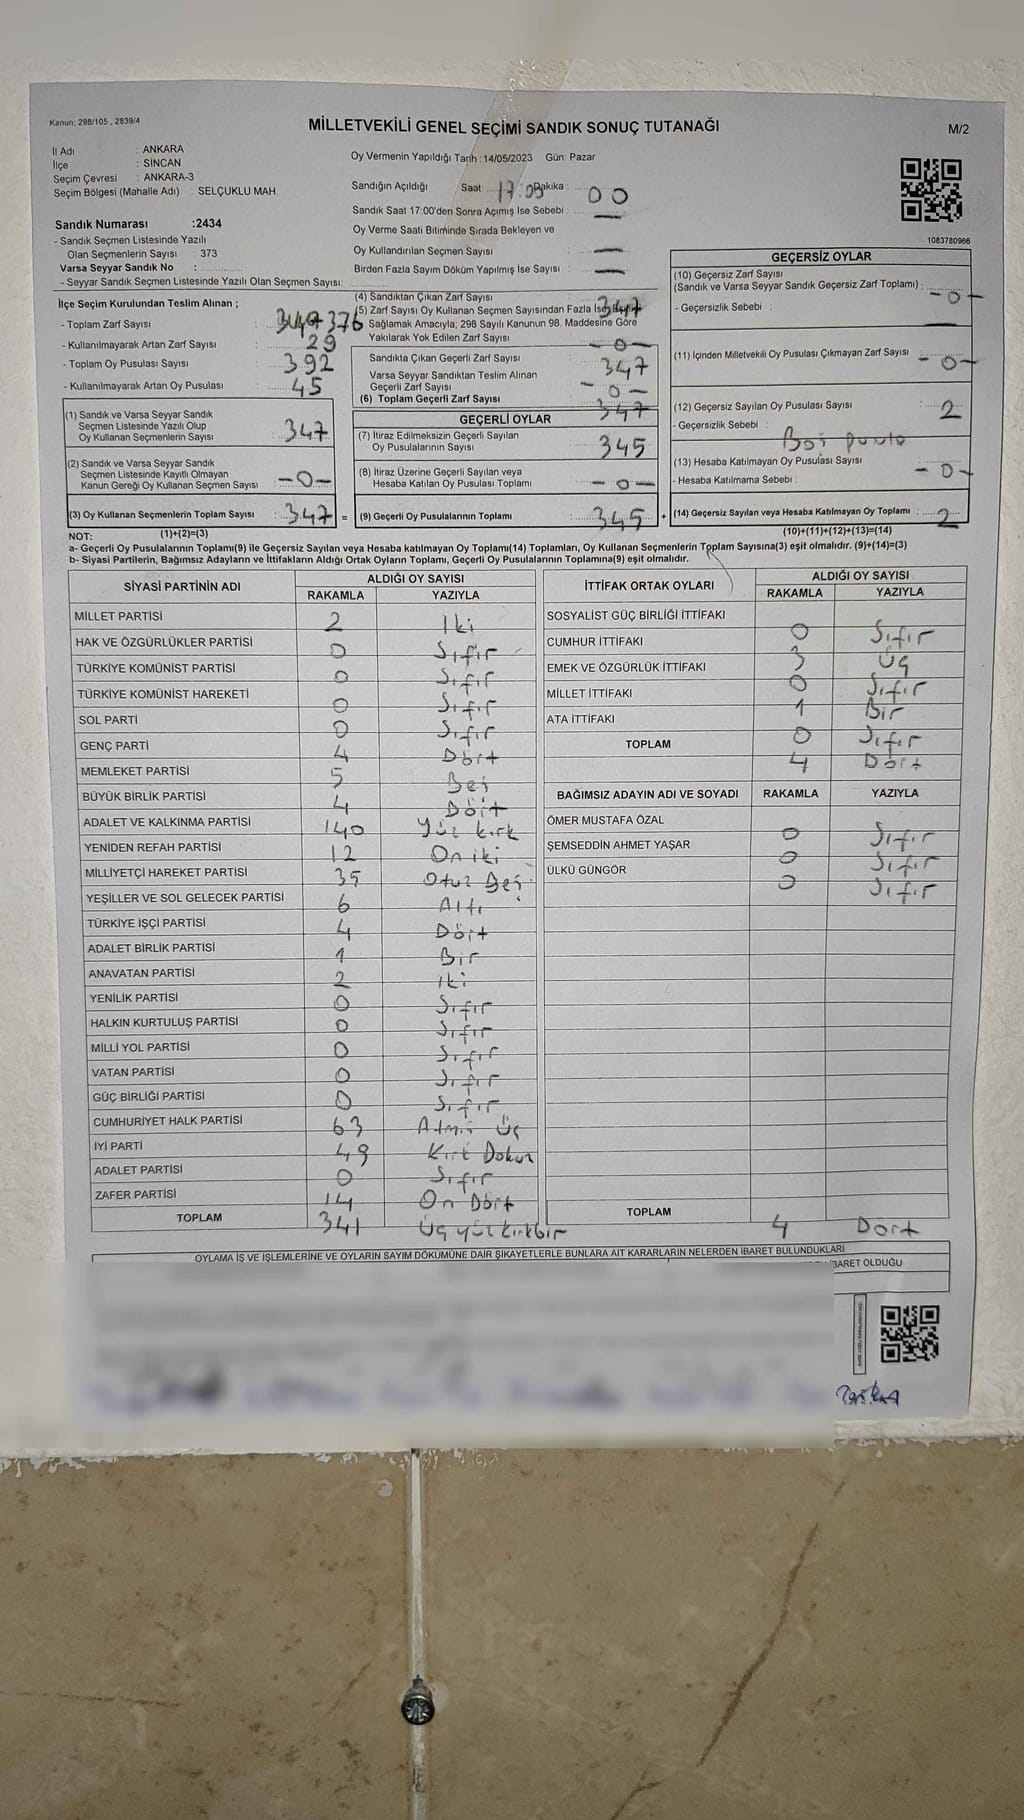 Kanun; 298/105 , 2839/4
MİLLETVEKİLİ GENEL SEÇİMİ SANDIK SONUÇ TUTANAĞI
M/2
İl Adı : ANKARA
İlçe : SİNCAN
Seçim Çevresi : ANKARA-3
Seçim Bölgesi (Mahalle Adı) : SELÇUKLU MAH.
Sandık Numarası :2434
- Sandık Seçmen Listesinde Yazılı
Olan Seçmenlerin Sayısı : 373
Varsa Seyyar Sandık No :
- Seyyar Sandık Seçmen Listesinde Yazılı Olan Seçmen Sayısı:
Oy Vermenin Yapıldığı Tarih :14/05/2023 Gün: Pazar
Sandığın Açıldığı Saat 17:00 Dakika : 00
Sandık Saat 17:00'den Sonra Açımış İse Sebebi : —
Oy Verme Saati Bitiminde Sırada Bekleyen ve
Oy Kullandırılan Seçmen Sayısı : —
Birden Fazla Sayım Döküm Yapılmış İse Sayısı : —
1083780966
İlçe Seçim Kurulundan Teslim Alınan ;
- Toplam Zarf Sayısı : 376
- Kullanılmayarak Artan Zarf Sayısı : 29
- Toplam Oy Pusulası Sayısı : 392
- Kullanılmayarak Artan Oy Pusulası : 45
(1) Sandık ve Varsa Seyyar Sandık
Seçmen Listesinde Yazılı Olup
Oy Kullanan Seçmenlerin Sayısı : 347
(2) Sandık ve Varsa Seyyar Sandık
Seçmen Listesinde Kayıtlı Olmayan
Kanun Gereği Oy Kullanan Seçmen Sayısı : -0-
(3) Oy Kullanan Seçmenlerin Toplam Sayısı : 347 =
(1)+(2)=(3)
(4) Sandıktan Çıkan Zarf Sayısı : 347
(5) Zarf Sayısı Oy Kullanan Seçmen Sayısından Fazla İse
Sağlamak Amacıyla; 298 Sayılı Kanunun 98. Maddesine Göre
Yakılarak Yok Edilen Zarf Sayısı : -0-
Sandıkta Çıkan Geçerli Zarf Sayısı : 347
Varsa Seyyar Sandıktan Teslim Alınan
Geçerli Zarf Sayısı : -0-
(6) Toplam Geçerli Zarf Sayısı : 347
GEÇERLİ OYLAR
(7) İtiraz Edilmeksizin Geçerli Sayılan
Oy Pusulalarının Sayısı : 345
(8) İtiraz Üzerine Geçerli Sayılan veya
Hesaba Katılan Oy Pusulası Toplamı : -0-
(9) Geçerli Oy Pusulalarının Toplamı : 345 +
GEÇERSİZ OYLAR
(10) Geçersiz Zarf Sayısı
(Sandık ve Varsa Seyyar Sandık Geçersiz Zarf Toplamı) : -0-
- Geçersizlik Sebebi : —
(11) İçinden Milletvekili Oy Pusulası Çıkmayan Zarf Sayısı : -0-
(12) Geçersiz Sayılan Oy Pusulası Sayısı : 2
- Geçersizlik Sebebi : Boş pusula
(13) Hesaba Katılmayan Oy Pusulası Sayısı : -0-
- Hesaba Katılmama Sebebi :
(14) Geçersiz Sayılan veya Hesaba Katılmayan Oy Toplamı : 2
(10)+(11)+(12)+(13)=(14)
NOT:
a- Geçerli Oy Pusulalarının Toplamı(9) ile Geçersiz Sayılan veya Hesaba katılmayan Oy Toplamı(14) Toplamları, Oy Kullanan Seçmenlerin Toplam Sayısına(3) eşit olmalıdır. (9)+(14)=(3)
b- Siyasi Partilerin, Bağımsız Adayların ve İttifakların Aldığı Ortak Oyların Toplamı, Geçerli Oy Pusulalarının Toplamına(9) eşit olmalıdır.
SİYASİ PARTİNİN ADI ALDIĞI OY SAYISI
RAKAMLA YAZIYLA
MİLLET PARTİSİ 2 İki
HAK VE ÖZGÜRLÜKLER PARTİSİ 0 Sıfır
TÜRKİYE KOMÜNİST PARTİSİ 0 Sıfır
TÜRKİYE KOMÜNİST HAREKETİ 0 Sıfır
SOL PARTİ 0 Sıfır
GENÇ PARTİ 4 Dört
MEMLEKET PARTİSİ 5 Beş
BÜYÜK BİRLİK PARTİSİ 4 Dört
ADALET VE KALKINMA PARTİSİ 140 Yüz kırk
YENİDEN REFAH PARTİSİ 12 On iki
MİLLİYETÇİ HAREKET PARTİSİ 35 Otuz Beş
YEŞİLLER VE SOL GELECEK PARTİSİ 6 Altı
TÜRKİYE İŞÇİ PARTİSİ 4 Dört
ADALET BİRLİK PARTİSİ 1 Bir
ANAVATAN PARTİSİ 2 İki
YENİLİK PARTİSİ 0 Sıfır
HALKIN KURTULUŞ PARTİSİ 0 Sıfır
MİLLİ YOL PARTİSİ 0 Sıfır
VATAN PARTİSİ 0 Sıfır
GÜÇ BİRLİĞİ PARTİSİ 0 Sıfır
CUMHURİYET HALK PARTİSİ 63 Atmış Üç
İYİ PARTİ 49 Kırk Dokuz
ADALET PARTİSİ 0 Sıfır
ZAFER PARTİSİ 14 On Dört
TOPLAM 341 Üç yüz kırkbir
İTTİFAK ORTAK OYLARI ALDIĞI OY SAYISI
RAKAMLA YAZIYLA
SOSYALİST GÜÇ BİRLİĞİ İTTİFAKI 0 Sıfır
CUMHUR İTTİFAKI 3 Üç
EMEK VE ÖZGÜRLÜK İTTİFAKI 0 Sıfır
MİLLET İTTİFAKI 1 Bir
ATA İTTİFAKI 0 Sıfır
TOPLAM 4 Dört
BAĞIMSIZ ADAYIN ADI VE SOYADI RAKAMLA YAZIYLA
ÖMER MUSTAFA ÖZAL 0 Sıfır
ŞEMSEDDİN AHMET YAŞAR 0 Sıfır
ÜLKÜ GÜNGÖR 0 Sıfır
TOPLAM 4 Dört
OYLAMA İŞ VE İŞLEMLERİNE VE OYLARIN SAYIM DÖKÜMÜNE DAİR ŞİKAYETLERLE BUNLARA AİT KARARLARIN NELERDEN İBARET BULUNDUKLARI
İBARET OLDUĞU